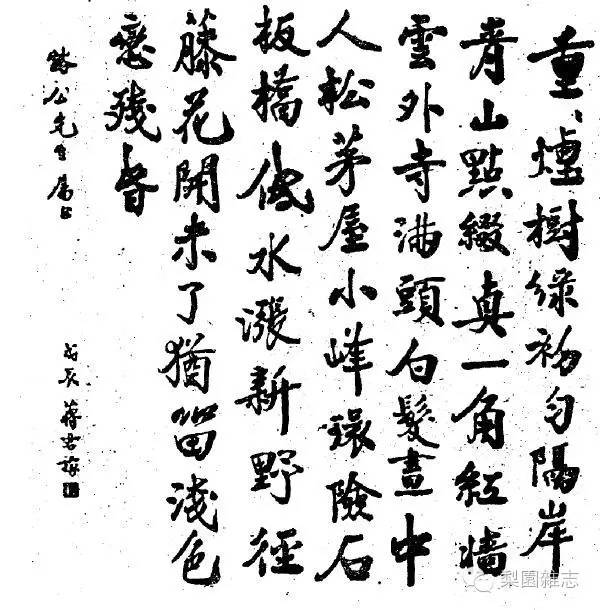 重〻煙樹綠初勻隔岸
青山點綴真一角紅墻
雲外寺滿頭白髮畫中
人松茅屋小峰環險石
板橋低水漲新野徑
藤花開未了猶留淺色
戀殘春
公先生屬
戊辰 蔣
梨園雜志